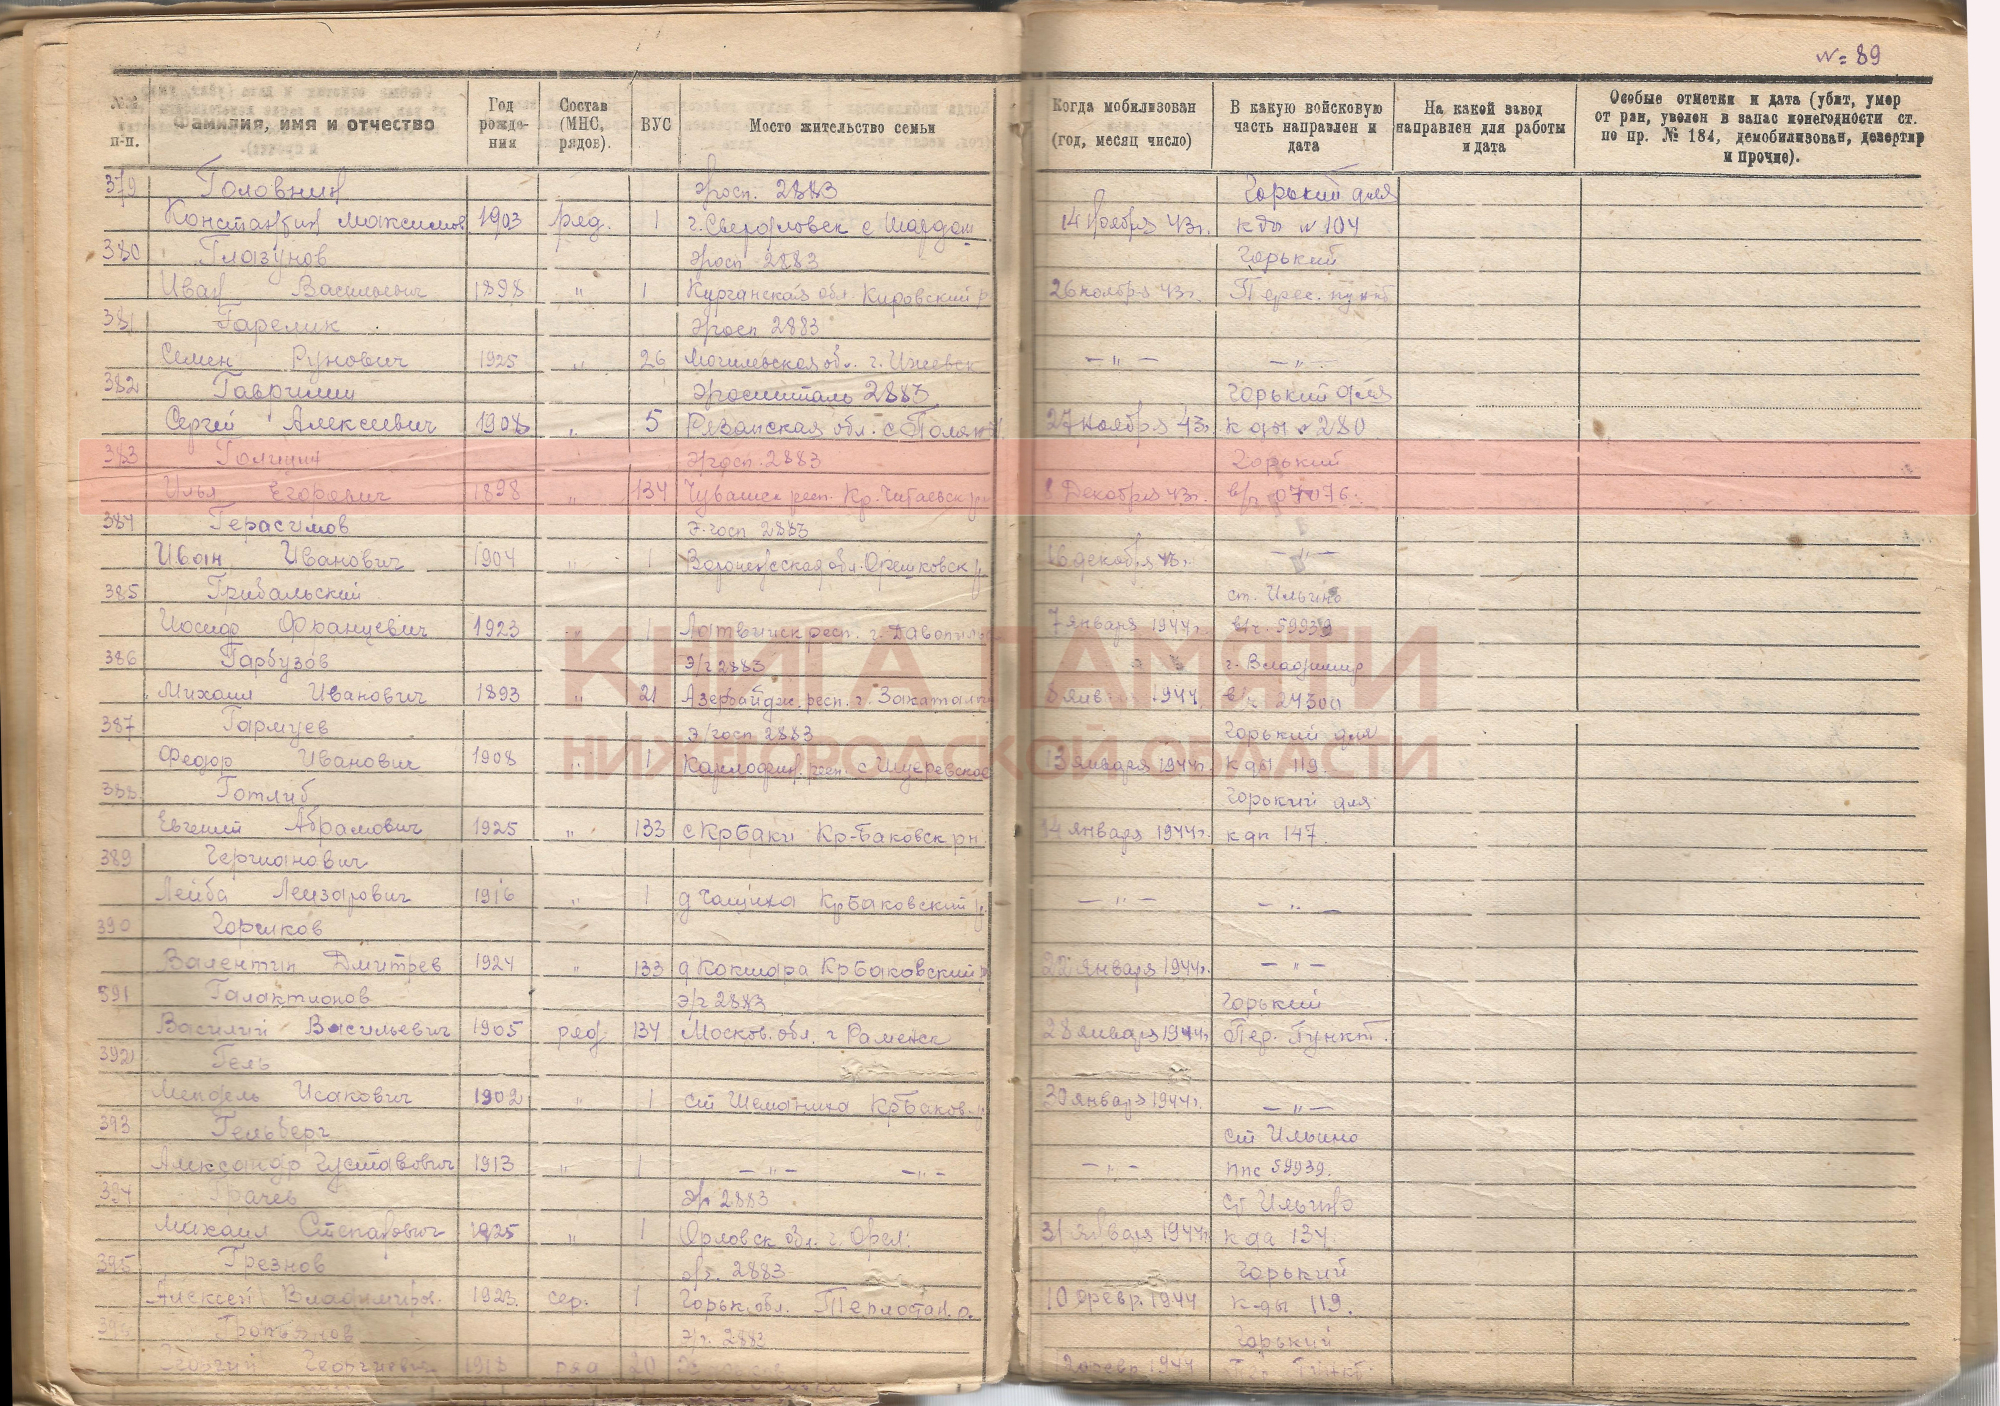 № 89
№№ п-п.
Фамилия, имя и отчество
Год рождения
Состав (МНС, рядов).
ВУС
Место жительство семьи
Когда мобилизован (год, месяц число)
В какую войсковую часть направлен и дата
На какой завод направлен для работы и дата
Особые отметки и дата (убит, умер от ран, уволен в запас по негодности ст. по пр. № 184, демобилизован, дезертир и прочие).
379 Головнин эгосп. 2883 Горький для
Константин Максимов 1903 ряд. 1 г. Свердловск с 14 ноября 43г. кды № 104
380 Глазунов эгосп 2883 Горький
Иван Васильевич 1898 " 1 Курганская обл. Кировский р 26 ноября 43г. Перес. пункт
381 Гарелик эгосп 2883
Семен Рунович 1925 " 26 Могилевская обл. г. Ижевск — " — — " —
382 Гаврилин эгоспиталь 2883 Горький для
Сергей Алексеевич 1908 " 5 Рязанская обл. с 27 ноября 43г кды № 280
383 Голицин эгосп. 2883 Горький
Илья Егорович 1898 " 134 Чувашск респ. Кр. Читаевск рн 8 Декабря 43г. в/ч 07076.
384 Герасимов э.госп 2883
Иван Иванович 1904 " 1 Воронежская обл. 16 декабря 43г. — " —
385 Грибальский ст. Ильино
Иосиф Францевич 1923 " 1 Латвийск респ. г. 7 января 1944г. в/ч. 59939
386 Гарбузов Э/г 2883 г. Владимир
Михаил Иванович 1893 " 21 Азербайдж. респ. г. Закаталы 8 янв 1944 в/ч 24300
387 Гармуев Э/госп 2883 Горький для
Федор Иванович 1908 1 респ. с 13 января 1944г. кды 119.
388 Готлиб Горький для
Евгений Абрамович 1925 " 133 с Кр Баки Кр-Баковск рн. 14 января 1944г. к дп 147.
389 Герцианович
Лейба Лейзарович 1916 " 1 д Кр Баковский р. — " — — " —
390 Горшков
Валентин Дмитрев 1924 " 133 д Кокшара Кр Баковский 22 января 1944г. — " —
391 Галактионов э/г 2883 Горький
Василий Васильевич 1905 ряд 134 Москов. обл. г Раменск 28 января 1944г Пер. Пункт.
392 Гель
Мендель Исакович 1902 " 1 ст Шеманиха Кр Баков. 30 января 1944г. — " —
393 Гельберг ст Ильино
Александр Густавович 1913 " 1 — " — — " — — " — ппс 59939.
394 Грачев э/г 2883 ст Ильино
Михаил Степанович 1925 " 1 Орловск обл. г. Орел. 31 января 1944г к да 134
395 Грезнов э/г. 2883 Горький
Алексей Владимиров. 1923. сер. 1 Горьк. обл. Теплостан. р. 10 февр. 1944 к-ды 119.
396 э/г. 2883 Горький
Георгий Георгиевич 1918 ряд 20 12 февр 1944
КНИГА ПАМЯТИ
НИЖЕГОРОДСКОЙ ОБЛАСТИ